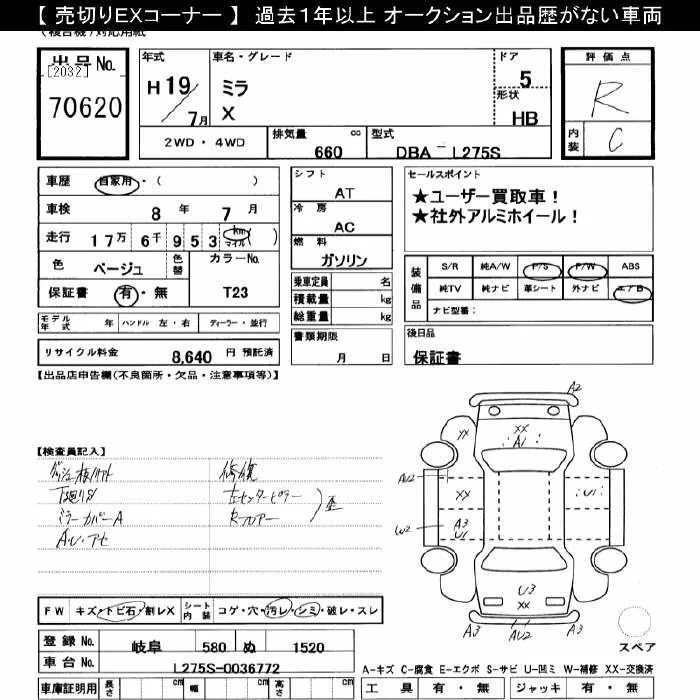 【 売切りEXコーナー 】 過去1年以上 オークション出品歴がない車両
出品No.
[2032]
70620
年式
H 19/7月
車名・グレード
ミラ
X
ドア
5
形状
HB
評価点
R
内装
C
2WD・4WD
排気量 cc
660
型式
DBA－L275S
車歴 自家用・( )
車検 8 年 7 月
走行 17万 6千 9 5 3 km マイル
色 ベージュ 色替 カラーNo.
保証書 有・無 T23
モデル年式 年 ハンドル 左・右 ディーラー・並行
リサイクル料金 8,640 円 預託済
シフト
AT
冷房
AC
燃料
ガソリン
乗車定員 名
積載量 kg
総重量 kg
書類期限
月 日
セールスポイント
★ユーザー買取車!
★社外アルミホイール!
装備品
S/R 純A/W P/S P/W ABS
純TV 純ナビ 革シート 外ナビ エ/B
ナビ型番:
後日品
保証書
【出品店申告欄(不良箇所・欠品・注意事項等)】
【検査員記入】
下廻りサ
ミラーカバーA
A,U・アセ
修復
左センターピラー
Rフロアー
歴
A2
XX
XX
A1
AU2
XX
U1
W2
A3
U1
U3
XX
A3
AU2
A3
スペア
FW キズ・トビ石・割レX シート内装 コゲ・穴・汚レ・シミ・破レ・スレ
登録No. 岐阜 580 ぬ 1520
車台No. L275S-0036772
A-キズ C-腐食 E-エクボ S-サビ U-凹ミ W-補修 XX-交換済
車庫証明用 長さ cm 幅 cm 高さ cm 工具 有・無 ジャッキ 有・無